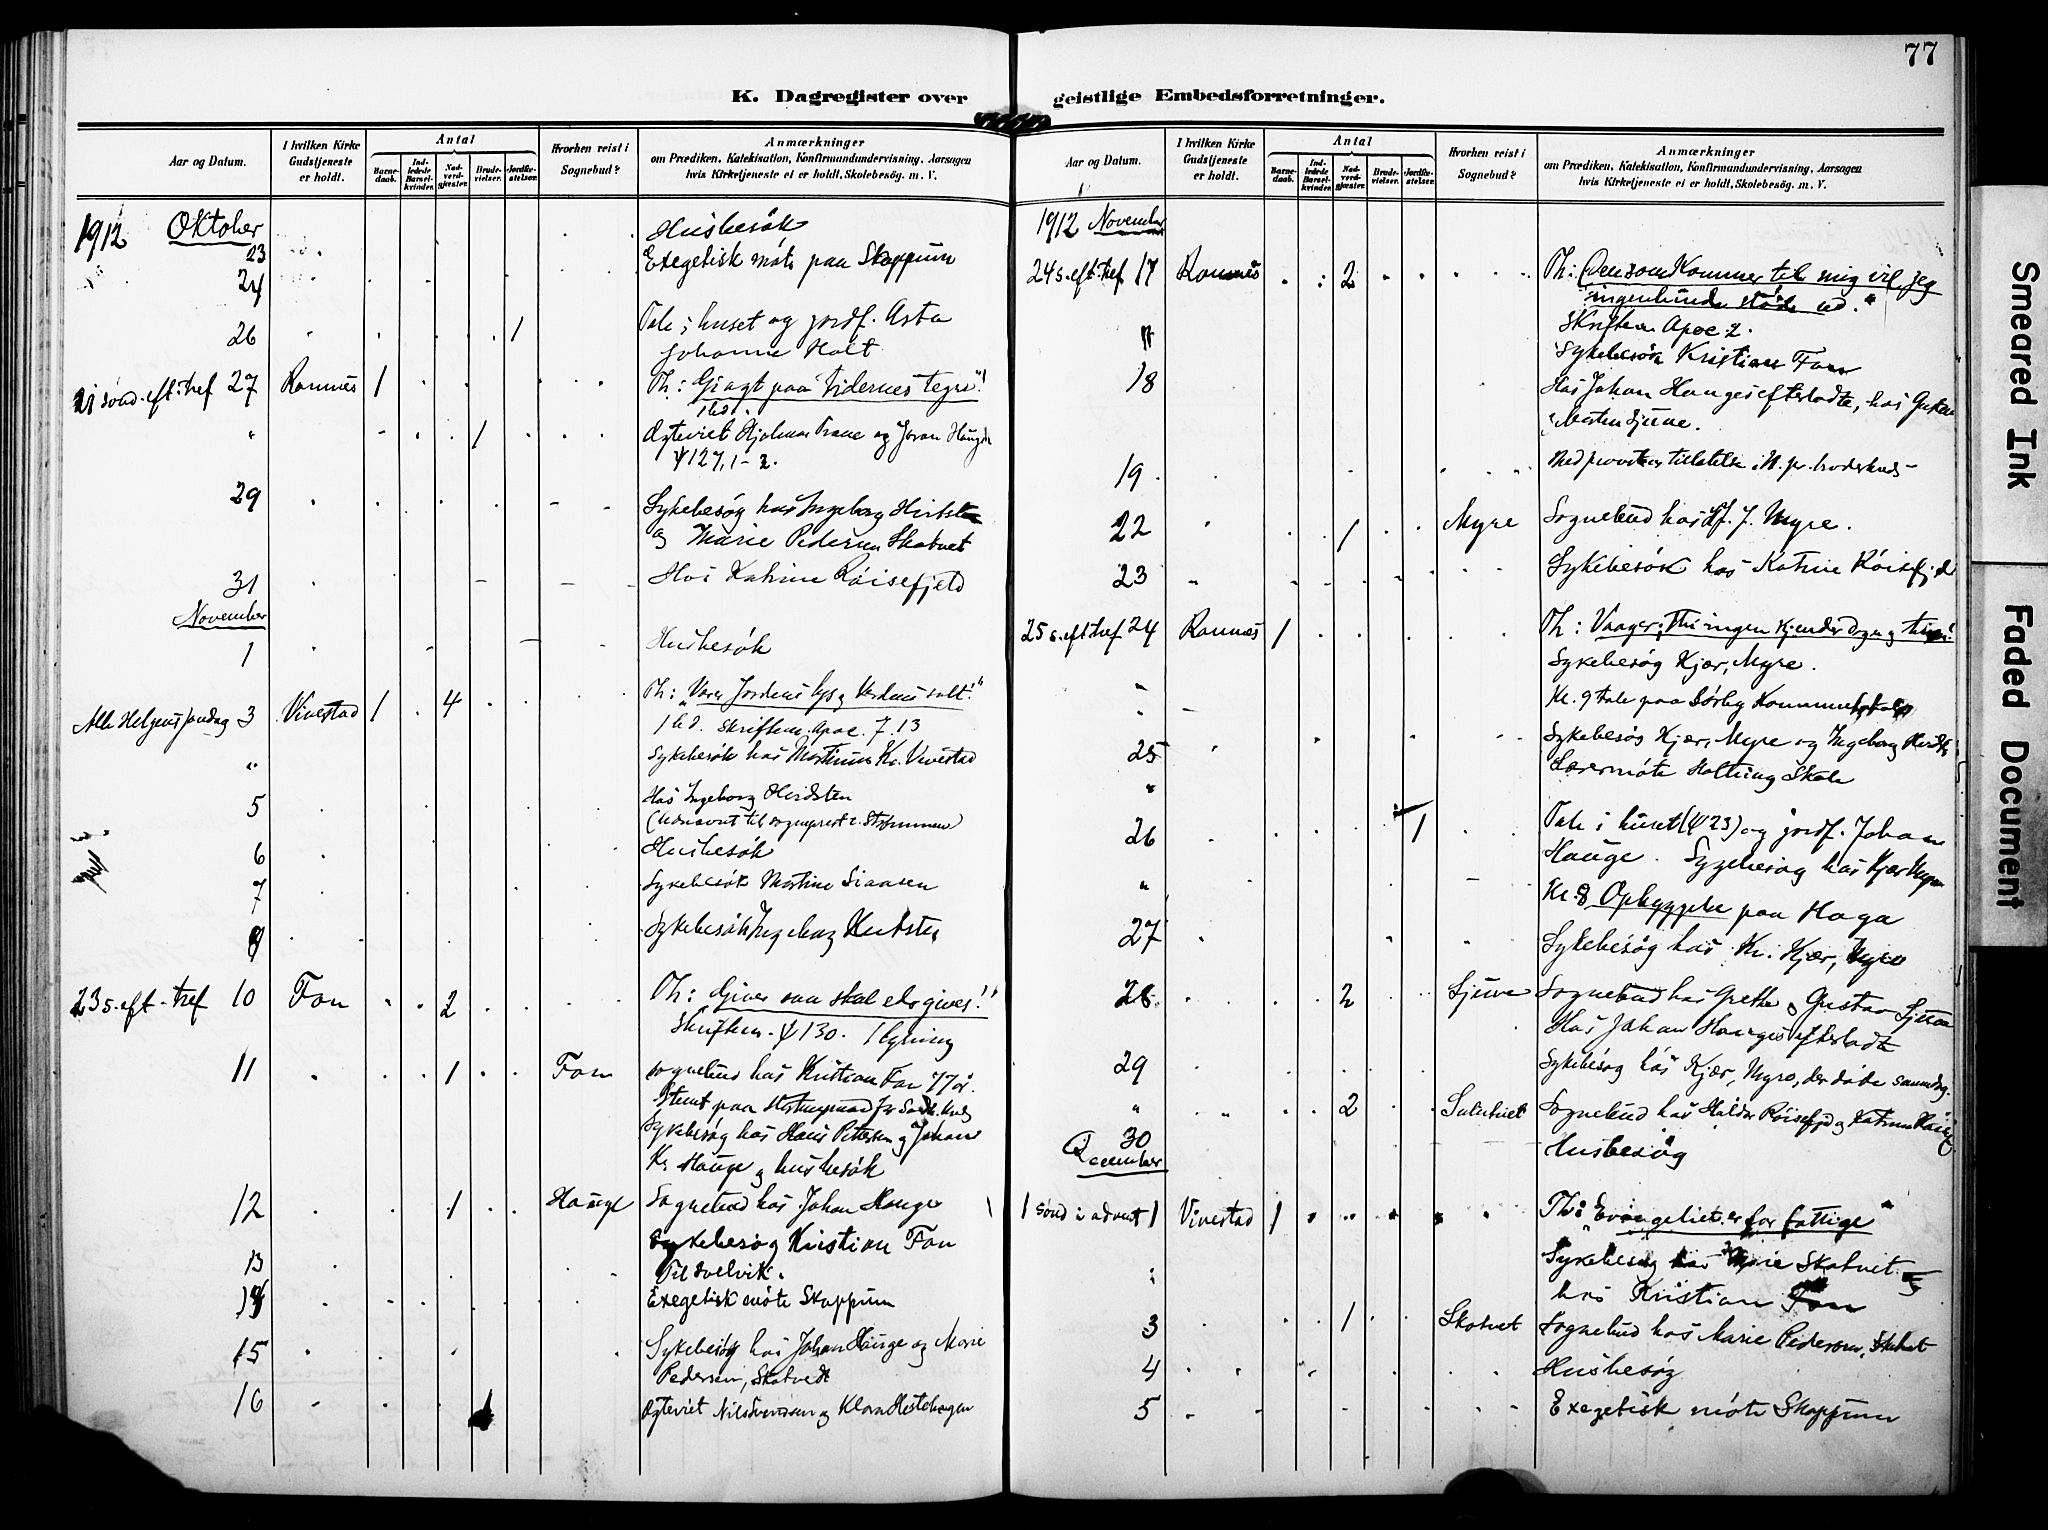 77
K. Dagregister over geistlige Embedsforretninger.
Aar og Datum.
I hvilken Kirke Gudstjeneste er holdt.
Antal
Barne-daab.
Ind-ledede Barsel-kvinder.
Nad-verd-gjæster.
Brude-vielser.
Jordfæ-stelser.
Hvorhen reist i Sognebud?
Anmærkninger
om Prædiken, Katekisation, Konfirmandundervisning, Aarsagen
hvis Kirketjeneste ei er holdt, Skolebesög. m. V.
1912 Oktober
23 Husbesök
24 Exegetisk möte paa Skoppum
26 1 Tale i huset og jordf. Asta
Johanne Holt
21 sönd. eft. tref 27 Ramnes 1 Th: Giagt paa Tidernes tegn!
1 Ægteviet Hjalmar Trane og
ψ 127, 1-2.
29 Sykebesög hos Ingeborg
og Marie Pedersen Skatvet
31 Hos Katrine Röisefjeld
November
1 Husbesök
Alle Helgens söndag 3 Vivestad 1 4 Th: Jordens og Verdens salt!"
Skriftem. Apoc. 7. 13
Sykebesök hos Martinus Kr. Vivestad
5 Hos Ingeborg Hvidsten
(Udnævnt til sogneprest i Strömmen)
6 Husbesök
7 Sykebesök Martine
8 Sykebesök Ingeborg
23 s. eft. tref 10 Fon 2 Th: Giver saa skal eder gives!"
Skriftem. ψ 130. 1 lysning
11 1 Fon Sognebud hos Kristian Fon 77 år.
Sykebesög hos Hans Pettersen og Johan
Kr. Hauge og husbesök
12 1 Hauge Sognebud hos Johan Hauge
Sykebesög Kristian Fon
13 Til Svelvik.
14 Exegetisk möte Skoppum
15 Sykebesög hos Johan Hauge og Marie
Pedersen, Skatvedt
16 Ægteviet Nils Svendsen og Klara Hestehagen
Aar og Datum.
I hvilken Kirke Gudstjeneste er holdt.
Antal
Barne-daab.
Ind-ledede Barsel-kvinder.
Nad-verd-gjæster.
Brude-vielser.
Jordfæ-stelser.
Hvorhen reist i Sognebud?
Anmærkninger
om Prædiken, Katekisation, Konfirmandundervisning, Aarsagen
hvis Kirketjeneste ei er holdt, Skolebesög. m. V.
1912 November
24 s. eft. tref 17 Ramnes 2 Th: Den som Kommer til mig vil jeg
ingenlunde støde ud."
Skriftem Apoc. 2.
Sykebesök Kristian Fon
18 Hos Johan Hauges efterladte, hos
19
22 1 Myre Sognebud hos J. Myre.
23 Sykebesök hos Katrine Röisefjeld
25 s. eft. tref 24 Ramnes 1 Th: Vaager; Thi ingen kjender dag og time!
Sykebesög Kjær, Myre.
Kl. 9 tale paa Sörby
25 Sykebesög Kjær, Myre og Ingeborg
Lærermöte Holtung Skole
26 1 Tale i huset (ψ 23) og jordf. Johan
Hauge. Sygebesög hos Kjær Myre
Kl. 8 Opbyggelse paa Haga
27 Sykebesög hos Kr. Kjær, Myre
28 2 Sjuve Sognebud hos Grethe og Gustav Sjuve
Hos Johan Hauges efterladte
29 Sykebesög hos Kjær, Myre, der döde samme dag.
2 Sognebud hos Haldor Röisefjeld og Katrine
30 Husbesög
December
1 sönd i advent 1 Vivestad 1 Th: "Evangeliet er for fattige"
Sykebesög hos Marie Skatvet og
hos Kristian Fon
3 1 Skatvet Sognebud hos Marie Pedersen, Skatvet
4 Husbesög
5 Exegetisk möte Skoppum
Smeared Ink
Faded Document